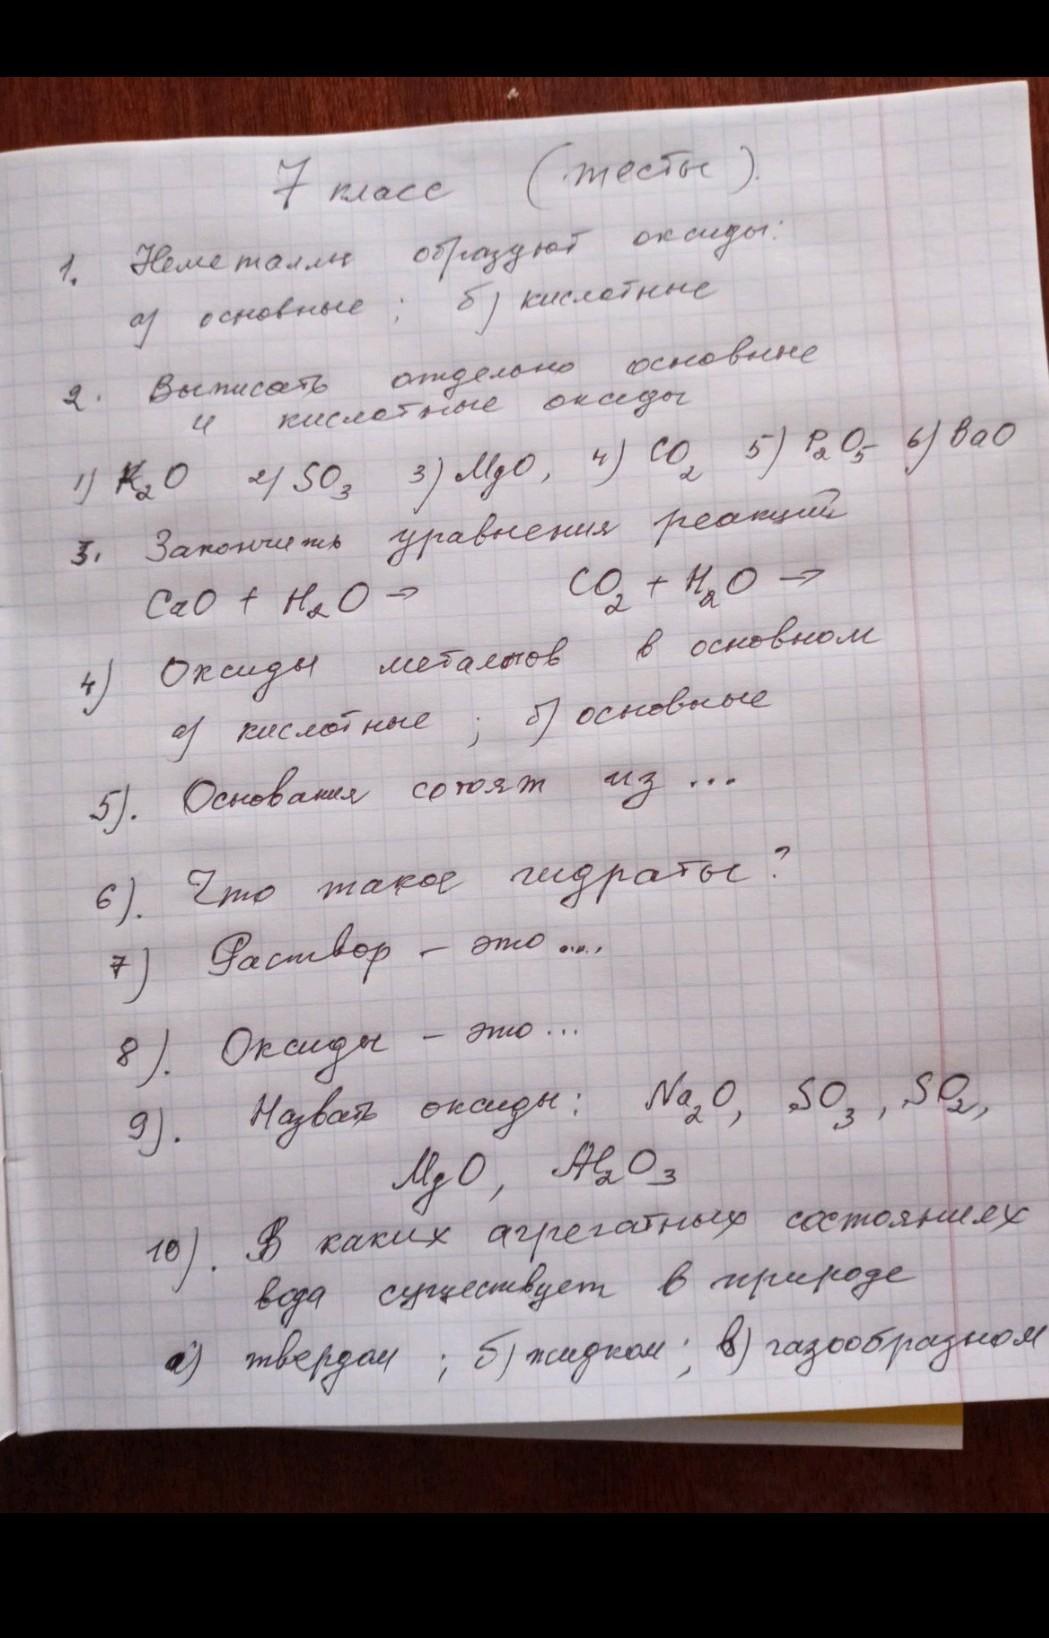 7 класс (тесты).
1. Неметаллы образуют оксиды:
а) основные; б) кислотные
2. Выписать отдельно основные
и кислотные оксиды
1) K₂O 2) SO₃ 3) MgO, 4) CO₂ 5) P₂O₅ 6) BaO
3. Закончить уравнения реакций
CaO + H₂O → CO₂ + H₂O →
4) Оксиды металлов в основном
а) кислотные; б) основные
5). Основания сотоят из ...
6). Что такое гидраты?
7) Раствор – это ....
8). Оксиды – это ...
9). Назвать оксиды: Na₂O, SO₃, SO₂,
MgO, Al₂O₃
10). В каких агрегатных состояниях
вода существует в природе
а) твердом; б) жидком; в) газообразном